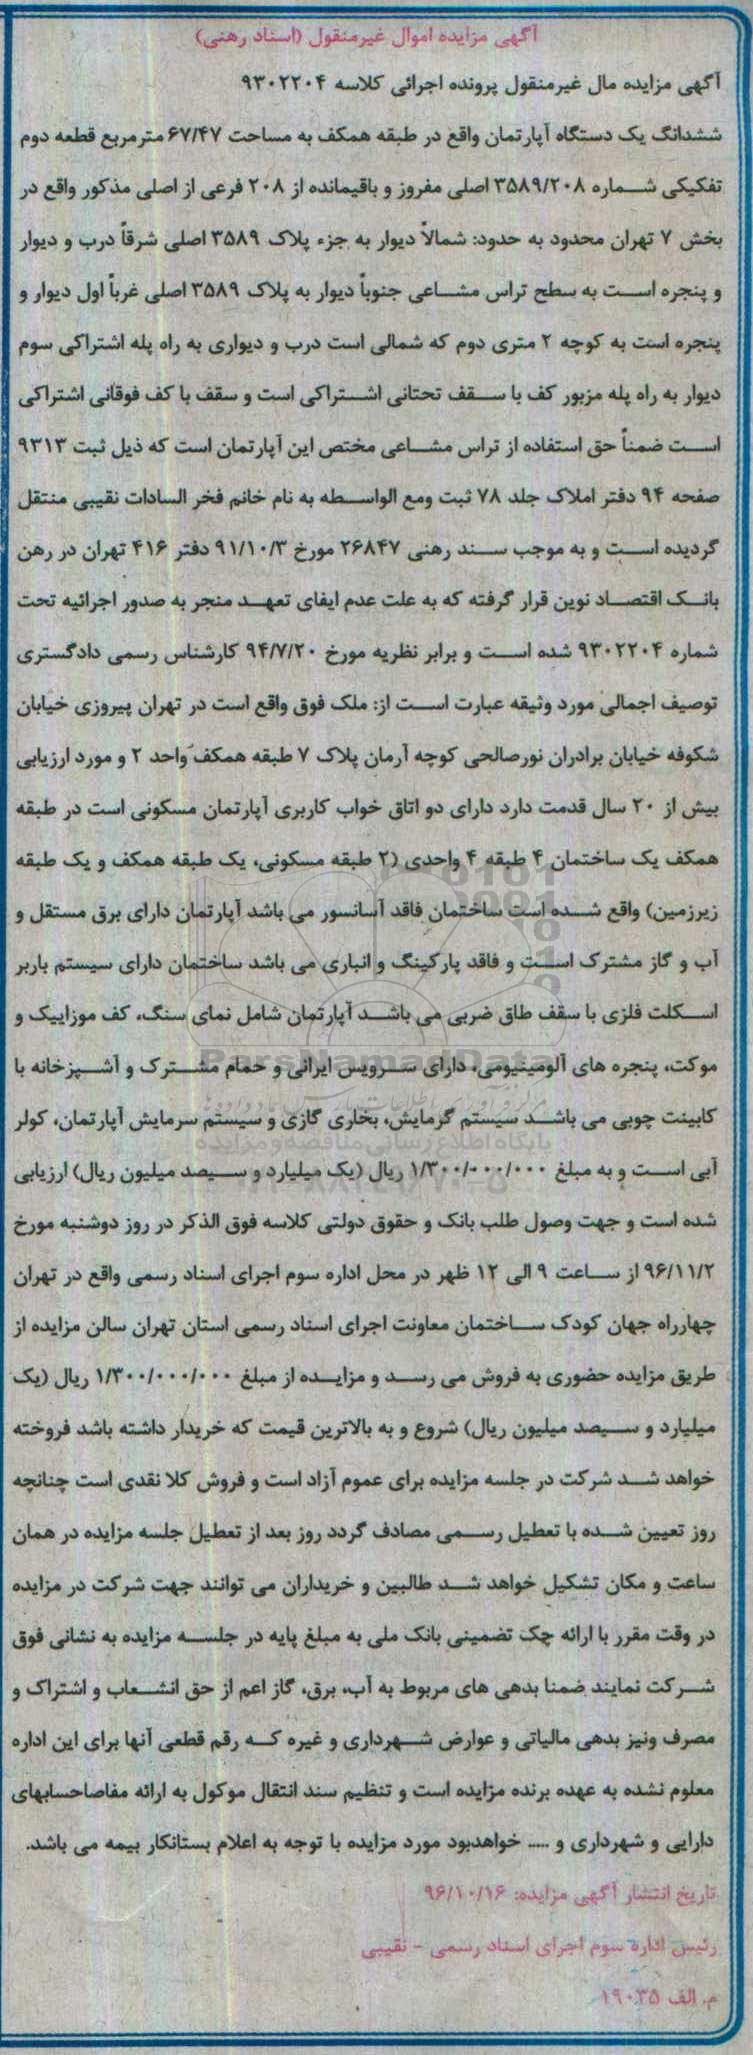 آگهی مزایده اموال غیرمنقول (اسناد رهنی)
آگهی مزایده مال غیرمنقول پرونده اجرائی کلاسه ۹۳۰۲۲۰۴
ششدانگ یک دستگاه آپارتمان واقع در طبقه همکف به مساحت ۶۷/۴۷ مترمربع قطعه دوم
تفکیکی شماره ۳۵۸۹/۲۰۸ اصلی مفروز و باقیمانده از ۲۰۸ فرعی از اصلی مذکور واقع در
بخش ۷ تهران محدود به حدود: شمالاً دیوار به جزء پلاک ۳۵۸۹ اصلی شرقاً درب و دیوار
و پنجره است به سطح تراس مشاعی جنوباً دیوار به پلاک ۳۵۸۹ اصلی غرباً اول دیوار و
پنجره است به کوچه ۲ متری دوم که شمالی است درب و دیواری به راه پله اشتراکی سوم
دیوار به راه پله مزبور کف با سقف تحتانی اشتراکی است و سقف با کف فوقانی اشتراکی
است ضمناً حق استفاده از تراس مشاعی مختص این آپارتمان است که ذیل ثبت ۹۳۱۳
صفحه ۹۴ دفتر املاک جلد ۷۸ ثبت ومع الواسطه به نام خانم فخر السادات نقیبی منتقل
گردیده است و به موجب سند رهنی ۲۶۸۴۷ مورخ ۹۱/۱۰/۳ دفتر ۴۱۶ تهران در رهن
بانک اقتصاد نوین قرار گرفته که به علت عدم ایفای تعهد منجر به صدور اجرائیه تحت
شماره ۹۳۰۲۲۰۴ شده است و برابر نظریه مورخ ۹۴/۷/۲۰ کارشناس رسمی دادگستری
توصیف اجمالی مورد وثیقه عبارت است از: ملک فوق واقع است در تهران پیروزی خیابان
شکوفه خیابان برادران نورصالحی کوچه آرمان پلاک ۷ طبقه همکف واحد ۲ و مورد ارزیابی
بیش از ۲۰ سال قدمت دارد دارای دو اتاق خواب کاربری آپارتمان مسکونی است در طبقه
همکف یک ساختمان ۴ طبقه ۴ واحدی (۲ طبقه مسکونی، یک طبقه همکف و یک طبقه
زیرزمین) واقع شده است ساختمان فاقد آسانسور می باشد آپارتمان دارای برق مستقل و
آب و گاز مشترک است و فاقد پارکینگ و انباری می باشد ساختمان دارای سیستم باربر
اسکلت فلزی با سقف طاق ضربی می باشد آپارتمان شامل نمای سنگ، کف موزاییک و
موکت، پنجره های آلومینیومی، دارای سرویس ایرانی و حمام مشترک و آشپزخانه با
کابینت چوبی می باشد سیستم گرمایش، بخاری گازی و سیستم سرمایش آپارتمان، کولر
آبی است و به مبلغ ۱/۳۰۰/۰۰۰/۰۰۰ ریال (یک میلیارد و سیصد میلیون ریال) ارزیابی
شده است و جهت وصول طلب بانک و حقوق دولتی کلاسه فوق الذکر در روز دوشنبه مورخ
۹۶/۱۱/۲ از ساعت ۹ الی ۱۲ ظهر در محل اداره سوم اجرای اسناد رسمی واقع در تهران
چهارراه جهان کودک ساختمان معاونت اجرای اسناد رسمی استان تهران سالن مزایده از
طریق مزایده حضوری به فروش می رسد و مزایده از مبلغ ۱/۳۰۰/۰۰۰/۰۰۰ ریال (یک
میلیارد و سیصد میلیون ریال) شروع و به بالاترین قیمت که خریدار داشته باشد فروخته
خواهد شد شرکت در جلسه مزایده برای عموم آزاد است و فروش کلا نقدی است چنانچه
روز تعیین شده با تعطیل رسمی مصادف گردد روز بعد از تعطیل جلسه مزایده در همان
ساعت و مکان تشکیل خواهد شد طالبین و خریداران می توانند جهت شرکت در مزایده
در وقت مقرر با ارائه چک تضمینی بانک ملی به مبلغ پایه در جلسه مزایده به نشانی فوق
شرکت نمایند ضمنا بدهی های مربوط به آب، برق، گاز اعم از حق انشعاب و اشتراک و
مصرف ونیز بدهی مالیاتی و عوارض شهرداری و غیره که رقم قطعی آنها برای این اداره
معلوم نشده به عهده برنده مزایده است و تنظیم سند انتقال موکول به ارائه مفاصاحسابهای
دارایی و شهرداری و ..... خواهدبود مورد مزایده با توجه به اعلام بستانکار بیمه می باشد.
تاریخ انتشار آگهی مزایده: ۹۶/۱۰/۱۶
رئیس اداره سوم اجرای اسناد رسمی - نقیبی
م. الف ۱۹۰۳۵
ParsNamadData
پایگاه اطلاع رسانی مناقصه و مزایده